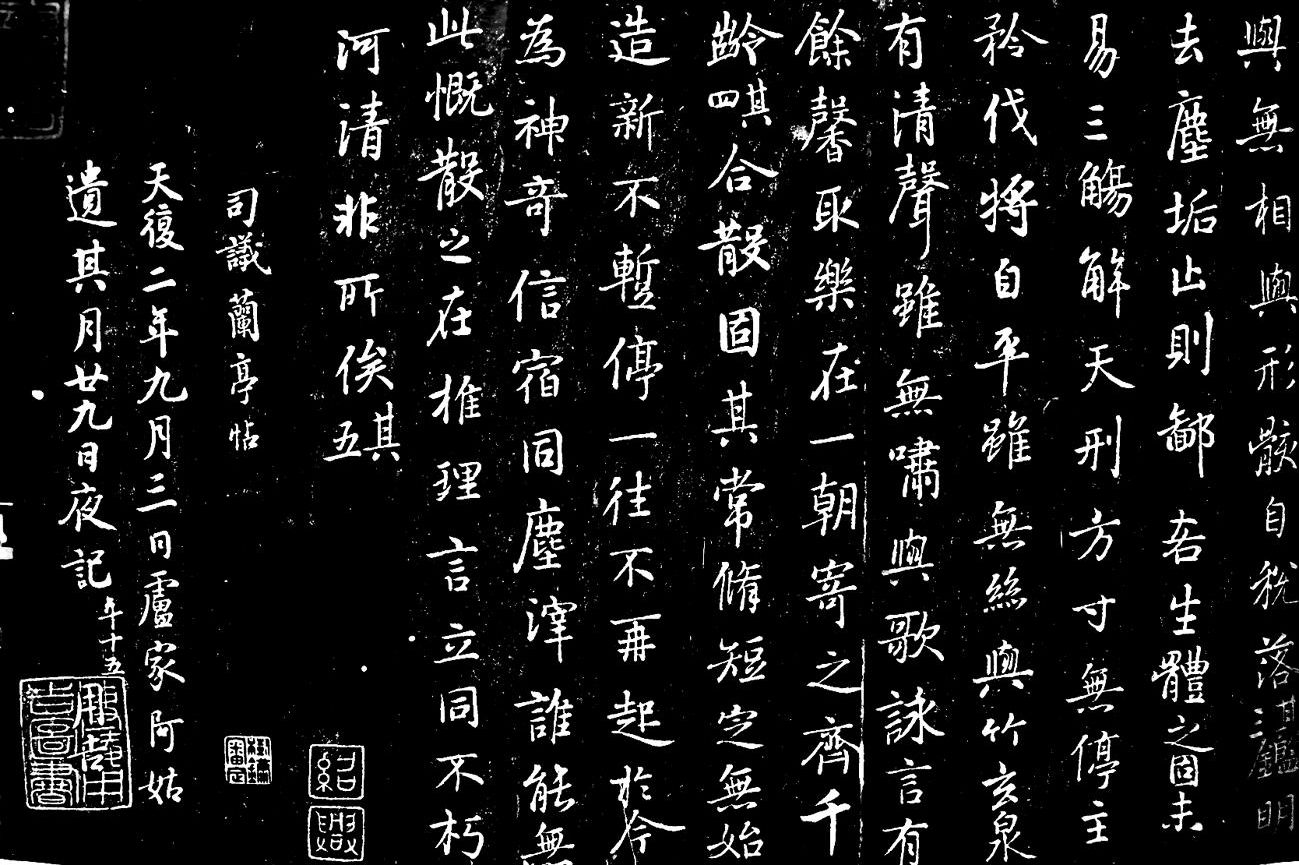 與無相與形骸自稅落其三鑑明
去塵垢止則鄙吝生體之固未
易三觴解天刑方寸無停主
矜伐將自平雖無絲與竹玄泉
有清聲雖無嘯與歌詠言有
餘馨取樂在一朝寄之齊千
齡其四合散固其常脩短定無始
造新不暫停一往不再起於今
為神奇信宿同塵滓誰能無
此慨散之在推理言立同不朽
河清非所俟其五
紹興
司議蘭亭帖
天復二年九月三日盧家阿姑
遺其月廿九日夜記年十五